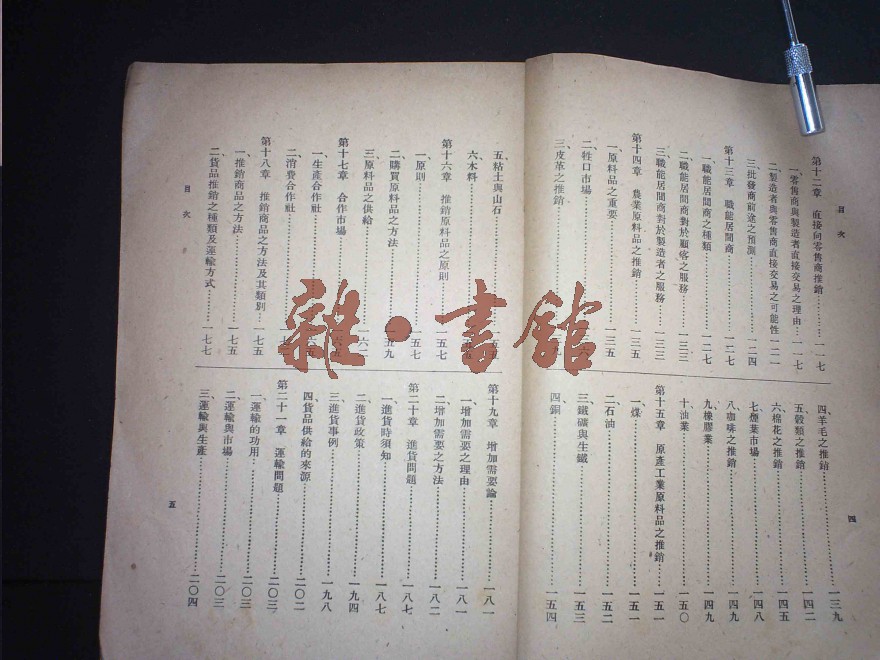 目次
第十二章 直接向零售商推銷⋯⋯一一七
一、零售商與製造者直接交易之理由⋯⋯一一七
二、製造者與零售商直接交易之可能性一二一
三、批發商前途之預測⋯⋯一二四
第十三章 職能居間商⋯⋯一二七
一、職能居間商之種類⋯⋯一二七
二、職能居間商對於顧客之服務⋯⋯一三三
三、職能居間商對於製造者之服務⋯⋯一三三
第十四章 農業原料品之推銷⋯⋯一三五
一、原料品之重要⋯⋯一三五
二、牲口市場⋯⋯
三、皮革之推銷⋯⋯
四、羊毛之推銷⋯⋯一三九
五、穀類之推銷⋯⋯一四二
六、棉花之推銷⋯⋯一四五
七、煙葉市場⋯⋯一四八
八、咖啡之推銷⋯⋯一四九
九、橡膠業⋯⋯一四九
十、油業⋯⋯一五〇
第十五章 原產工業原料品之推銷⋯⋯一五一
一、煤⋯⋯一五一
二、石油⋯⋯一五二
三、鐵礦與生鐵⋯⋯一五三
四、銅⋯⋯一五四
四
五、粘土與山石⋯⋯
六、木料⋯⋯
第十六章 推銷原料品之原則⋯⋯一五七
一、原則⋯⋯一五七
二、購買原料品之方法⋯⋯一五九
三、原料品之供給⋯⋯
第十七章 合作市場⋯⋯
一、生產合作社⋯⋯
二、消費合作社⋯⋯
第十八章 推銷商品之方法及其類別⋯⋯一七五
一、推銷商品之方法⋯⋯一七五
二、貨品推銷之種類及運輸方式⋯⋯一七七
目次
第十九章 增加需要論⋯⋯一八一
一、增加需要之理由⋯⋯一八一
二、增加需要之方法⋯⋯一八二
第二十章 進貨問題⋯⋯一八七
一、進貨時須知⋯⋯一八七
二、進貨政策⋯⋯一九四
三、進貨事例⋯⋯一九八
四、貨品供給的來源⋯⋯二〇二
第二十一章 運輸問題⋯⋯二〇三
一、運輸的功用⋯⋯二〇三
二、運輸與市場⋯⋯二〇三
三、運輸與生產⋯⋯二〇四
五
雜·書館